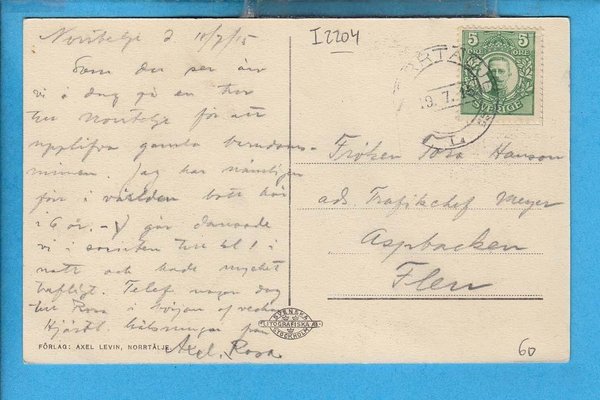 Norrtelje d 18/7/15
Som du ser äro
vi i dag på en tur
till Norrtelje för att
uppfriska gamla barndoms-
minnen. Jag har nämligen
för i världen bott här
i 6 år. – I går dansade
vi i societen till kl 1 i
natt och hade mycket
trefligt. Telef någon dag
till Rosa i början af veckan
Hjärtl. hälsningar från
Axel. Rosa
FÖRLAG: AXEL LEVIN, NORRTÄLJE.
I2204
5 5
ÖRE ÖRE
SVERIGE
19.7.15
Fröken Tora Hanson
adr. Trafikchef Meyer
Aspbacken
Flen
SVENSKA
LITOGRAFISKA AB.
STOCKHOLM
60